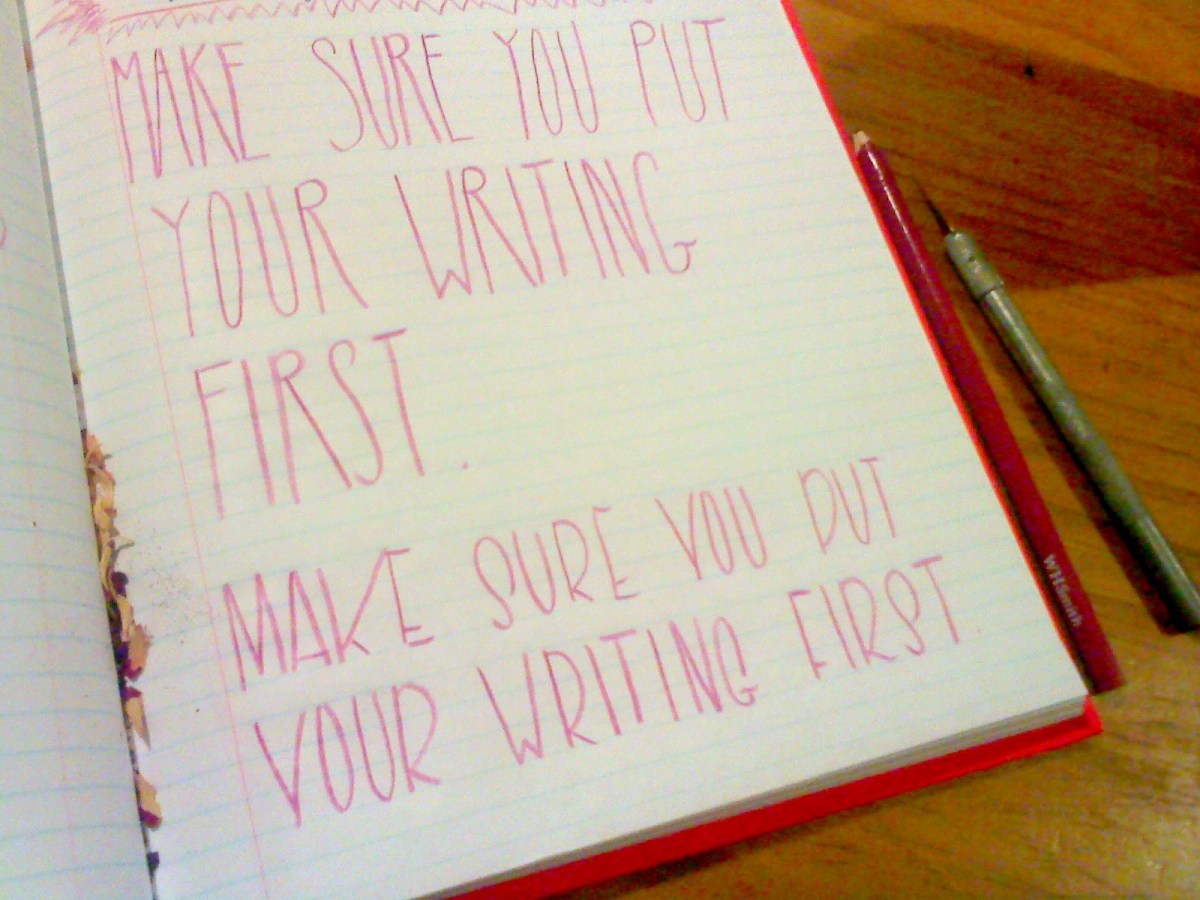 MAKE SURE YOU PUT
YOUR WRITING
FIRST.
MAKE SURE YOU PUT
YOUR WRITING FIRST.
WHSmith